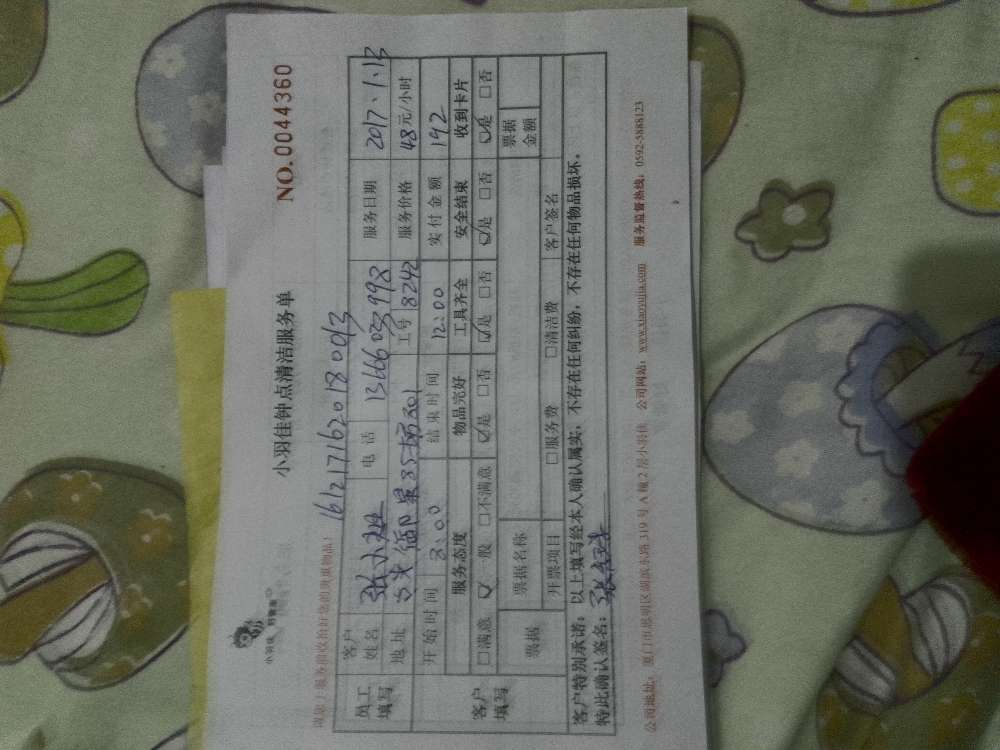 小羽佳
NO.0044360
小羽佳钟点清洁服务单
16121716201800 13
员工填写
客户姓名 电话 服务日期 2017、1.13
地址 工号 8242 服务价格 48元/小时
客户填写
开始时间 8:00 结束时间 12:00 实付金额 192
服务态度 物品完好 工具齐全 安全结束 收到卡片
□满意 一般 □不满意 是 □否 是 □否 是 □否 是 □否
票据 票据名称 票据金额
开票项目 □服务费 □清洁费 客户签名
客户特别承诺：以上填写经本人确认属实，不存在任何纠纷，不存在任何物品损坏。
特此确认签名：
公司地址：厦门市思明区湖滨东路319号A幢2层小羽佳 公司网站：www.xiaoyujia.com 服务监督热线：0592-5888123